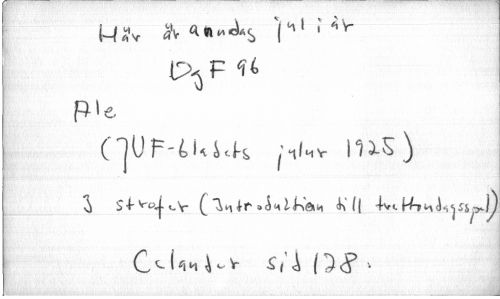 Här är anndag jul i år
DgF 96
Ale
(JUF-bladets julnr 1925)
3 strofer (Introduktion till trettondagsspel)
Celander sid 128.